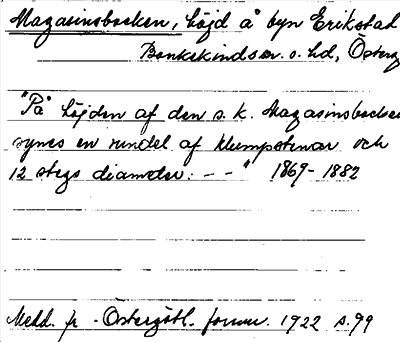 Magasinsbacken, höjd å byn Erikstad
Bankekinds sn. o. hd, Österg
"På höjden af den s. k. Magasinsbacken
synes en rundel af klumpstenar och
12 stegs diameter. - - " 1869-1882
Medd. fr. Östergötl. fornm. 1922 s. 99